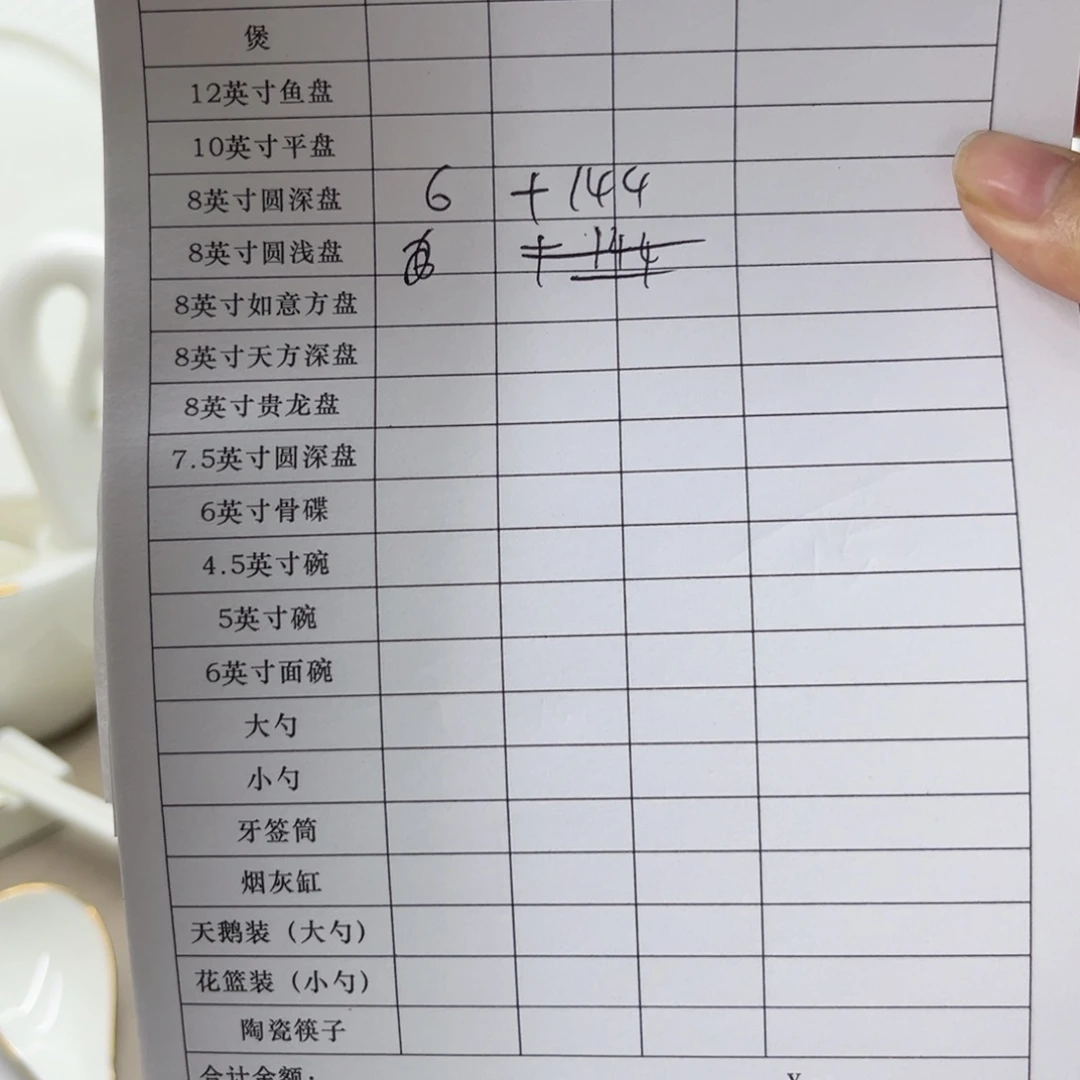 煲
12英寸鱼盘
10英寸平盘
8英寸圆深盘 6 +144
8英寸圆浅盘 +144
8英寸如意方盘
8英寸天方深盘
8英寸贵龙盘
7.5英寸圆深盘
6英寸骨碟
4.5英寸碗
5英寸碗
6英寸面碗
大勺
小勺
牙签筒
烟灰缸
天鹅装（大勺）
花篮装（小勺）
陶瓷筷子
合计金额：